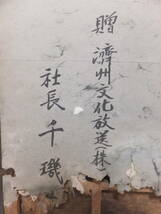 贈 濟州文化放送(株)
社長 千璣